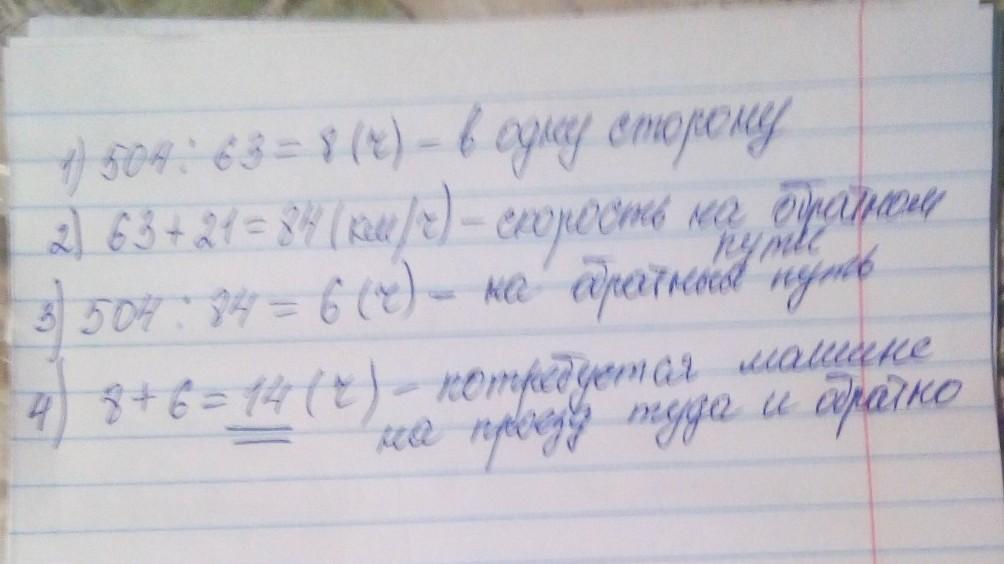 1) 504 : 63 = 8 (ч) – в одну сторону
2) 63 + 21 = 84 (км/ч) – скорость на обратном
пути
3) 504 : 84 = 6 (ч) – на обратный путь
4) 8 + 6 = 14 (ч) – потребуется машине
на проезд туда и обратно